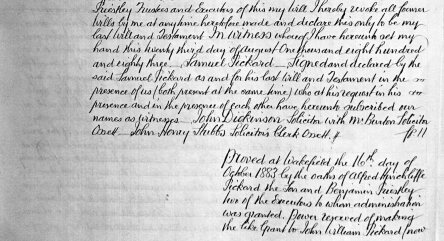 Priestley Trustees and Executors of this my Will I hereby revoke all former
Wills by me at any time heretofore made and declare this only to be my
last Will and Testament In witness whereof I have hereunto set my
hand this twenty third day of August One thousand eight hundred
and eighty three Samuel Pickard Signed and declared by the
said Samuel Pickard as and for his last Will and Testament in the
presence of us (both present at the same time) who at his request in his
presence and in the presence of each other have hereunto subscribed our
names as witnesses John Dickenson Solicitor with Mr Burton Solicitor
Ossett John Henry Stubbs Solicitors Clerk Ossett
Proved at Wakefield the 16th day of
October 1883 by the oaths of Alfred Hinchcliffe
Pickard the Son and Benjamin Priestley
two of the Executors to whom administration
was granted. Power reserved of making
the like Grant to John William Pickard now